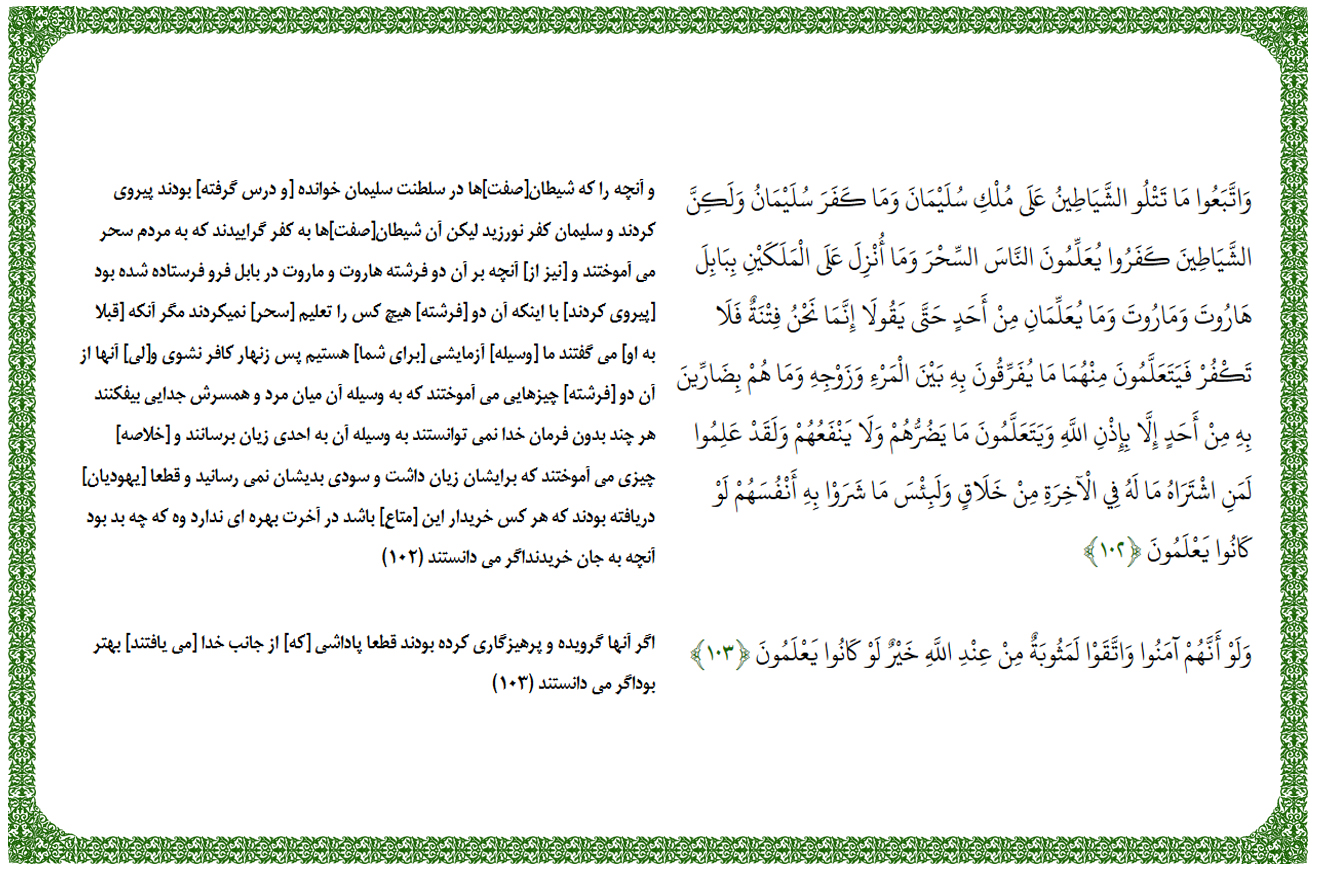 وَاتَّبَعُوا مَا تَتْلُو الشَّيَاطِينُ عَلَى مُلْكِ سُلَيْمَانَ وَمَا كَفَرَ سُلَيْمَانُ وَلَكِنَّ
الشَّيَاطِينَ كَفَرُوا يُعَلِّمُونَ النَّاسَ السِّحْرَ وَمَا أُنْزِلَ عَلَى الْمَلَكَيْنِ بِبَابِلَ
هَارُوتَ وَمَارُوتَ وَمَا يُعَلِّمَانِ مِنْ أَحَدٍ حَتَّى يَقُولَا إِنَّمَا نَحْنُ فِتْنَةٌ فَلَا
تَكْفُرْ فَيَتَعَلَّمُونَ مِنْهُمَا مَا يُفَرِّقُونَ بِهِ بَيْنَ الْمَرْءِ وَزَوْجِهِ وَمَا هُمْ بِضَارِّينَ
بِهِ مِنْ أَحَدٍ إِلَّا بِإِذْنِ اللَّهِ وَيَتَعَلَّمُونَ مَا يَضُرُّهُمْ وَلَا يَنْفَعُهُمْ وَلَقَدْ عَلِمُوا
لَمَنِ اشْتَرَاهُ مَا لَهُ فِي الْآخِرَةِ مِنْ خَلَاقٍ وَلَبِئْسَ مَا شَرَوْا بِهِ أَنْفُسَهُمْ لَوْ
كَانُوا يَعْلَمُونَ ﴿۱۰۲﴾
و آنچه را که شیطان[صفت]ها در سلطنت سلیمان خوانده [و درس گرفته] بودند پیروی
کردند و سلیمان کفر نورزید لیکن آن شیطان[صفت]ها به کفر گراییدند که به مردم سحر
می آموختند و [نیز از] آنچه بر آن دو فرشته هاروت و ماروت در بابل فرو فرستاده شده بود
[پیروی کردند] با اینکه آن دو [فرشته] هیچ کس را تعلیم [سحر] نمیکردند مگر آنکه [قبلا
به او] می گفتند ما [وسیله] آزمایشی [برای شما] هستیم پس زنهار کافر نشوی و[لی] آنها از
آن دو [فرشته] چیزهایی می آموختند که به وسیله آن میان مرد و همسرش جدایی بیفکنند
هر چند بدون فرمان خدا نمی توانستند به وسیله آن به احدی زیان برسانند و [خلاصه]
چیزی می آموختند که برایشان زیان داشت و سودی بدیشان نمی رسانید و قطعا [یهودیان]
دریافته بودند که هر کس خریدار این [متاع] باشد در آخرت بهره ای ندارد وه که چه بد بود
آنچه به جان خریدنداگر می دانستند (۱۰۲)
وَلَوْ أَنَّهُمْ آمَنُوا وَاتَّقَوْا لَمَثُوبَةٌ مِنْ عِنْدِ اللَّهِ خَيْرٌ لَوْ كَانُوا يَعْلَمُونَ ﴿۱۰۳﴾
اگر آنها گرویده و پرهیزگاری کرده بودند قطعا پاداشی [که] از جانب خدا [می یافتند] بهتر
بوداگر می دانستند (۱۰۳)